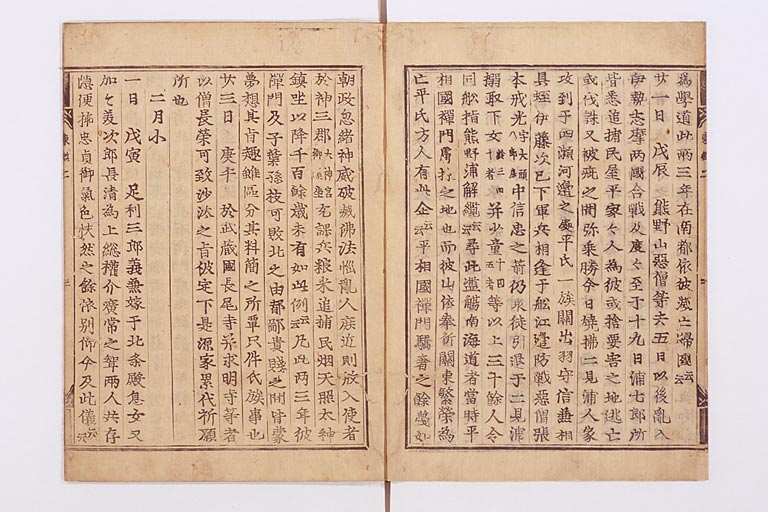 為學道此兩三年在南都依彼滅亡歸國云云
廿一日 戊辰 熊野山惡僧等去五日以後亂入
伊勢志摩兩國合戰及度々至于十九日浦七郎所
皆悉追捕民屋平家々人為彼或捨要害之地逃亡
或伐誅又被疵之間弥乗勝今日燒拂二見浦人家
攻到于四瀬河邊之處平氏一族關出羽守信兼相
具姪伊藤次已下軍兵相逢于舩江邊防戰惡僧張
本戒光字大頭八郎房中信忠之箭仍衆徒引退于二見浦
搦取下女并少童等以上三十餘人令
同舩指熊野浦解纜云云尋此濫觴南海道者當時平
相國禪門虜掠之地也而彼山依奉祈關東繁榮為
亡平氏方人有此企云云平相國禪門驕奢之餘蔑如
朝政忽緒神威破滅佛法惱亂人庶近則放入使者
於神三郡大神宮御鎮坐充課兵粮米追捕民烟天照太神
鎮坐以降千百餘歳未有如此例云云凡此兩三年彼
禪門及子葉孫枝可敗北之由都鄙貴賤之間皆蒙
夢想其旨趣雖區分其料簡之所覃只件氏族事也
廿三日 庚午 於武藏國長尾寺并求明寺等者
以僧長榮可致沙汰之旨被定下是源家累代祈願
所也
二月小
一日 戊寅 足利三郎義兼嫁于北条殿息女又
加々美次郎長清為上総權介廣常之聟兩人共存
隱便挿忠貞御氣色快然之餘依別仰今及此儀云云